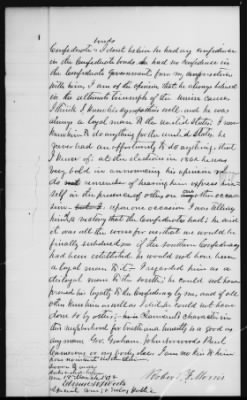 Confederate & I dont believe he had any confidence
in the Confederate bonds he had no confidence in
the Confederate Government from my conversation
with him, I am of the opinion that he always believed
in the ultimate triumph of the union cause.
I think I know his sympathies well and he was
always a loyal man to the United States. I never
knew him to do anything for the united States, he
never had an opportunity to do anything, that
I know of. at the election in 1861 he was
very bold in announcing his opinion
do not remember of hearing him express him-
self in the presence of others on any other occa-
sion. upon one occasion I was telling
him of a victory that the Confederates had; he said
it was all the worse for us, that we would be
finally subdued. if the southern Confederacy
had been established he would not have been
a loyal man to it. I regarded him as a
disloyal man to the south; he could not have
proved his loyalty to the Confederacy by me, and if all
other knew him as well as I did he could not have
done so by others. Claimants character in
this neighborhood for truth and honesty is as good as
any man Geo. Graham John
Cameron or any body else. I am no kin to him

Robert F. Morris